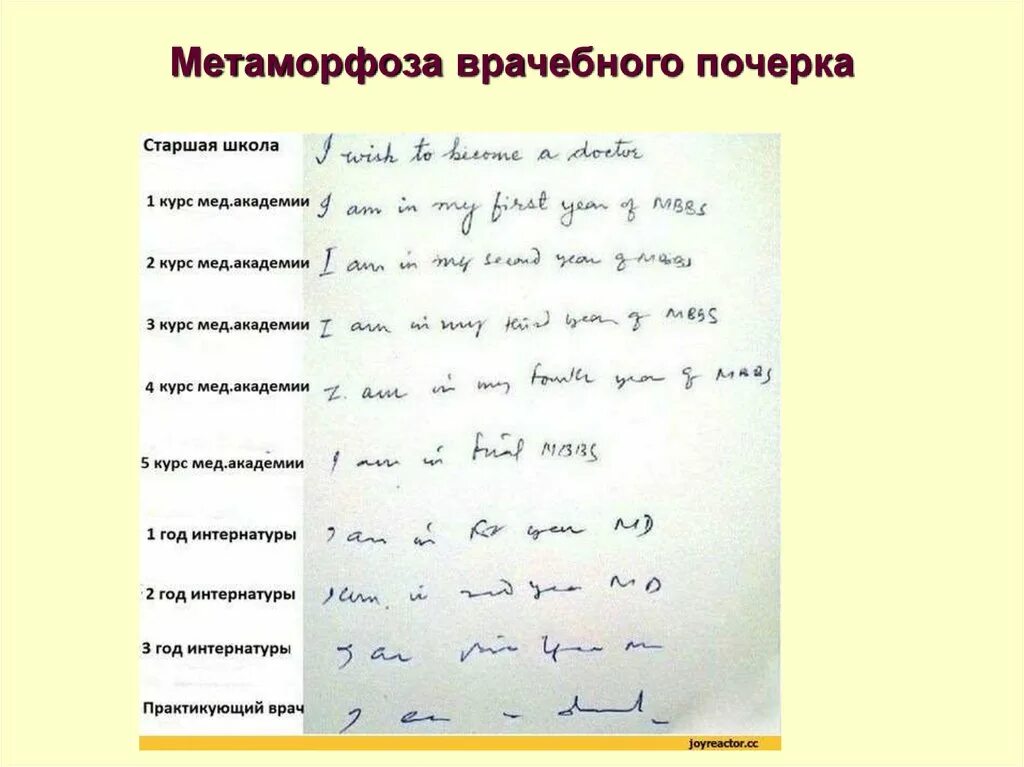 Метаморфоза врачебного почерка
Старшая школа I wish to become a doctor
1 курс мед.академии I am in my first year of MBBS
2 курс мед.академии I am in my second year of MBBS
3 курс мед.академии I am in my third year of MBBS
4 курс мед.академии I am in my fourth year of MBBS
5 курс мед.академии I am in final MBBS
1 год интернатуры I am in first year MD
2 год интернатуры I am in 2nd year MD
3 год интернатуры I am
Практикующий врач I am
joyreactor.cc